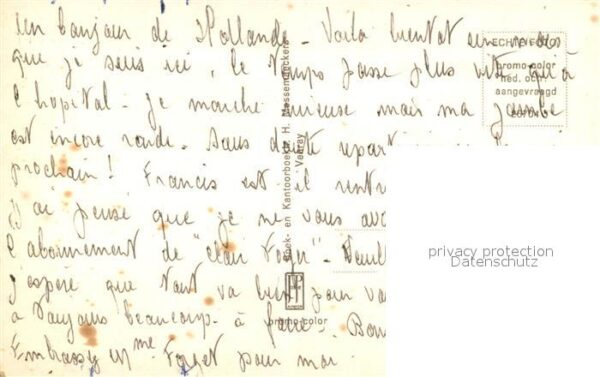 Un bonjour de Hollande. Voilà bientôt un mois
que je suis ici, le temps passe plus vite qu'à
l'hopital. Je marche mieux mais ma jambe
est encore raide. Sans doute repart
prochain! Francis est il rentr
J'ai pensé que je ne vous av
l'abonnement de "
J'espère que tout va bien pour vo
a toujours beaucoup à faire. Bon
Embrassez Mme Forget pour moi.
ECHTE FOTO
promo-color
ned. octr.
aangevraagd
Boek- en Kantoorboekh. H. Massendruckers
Venray
promo-color
privacy protection
Datenschutz